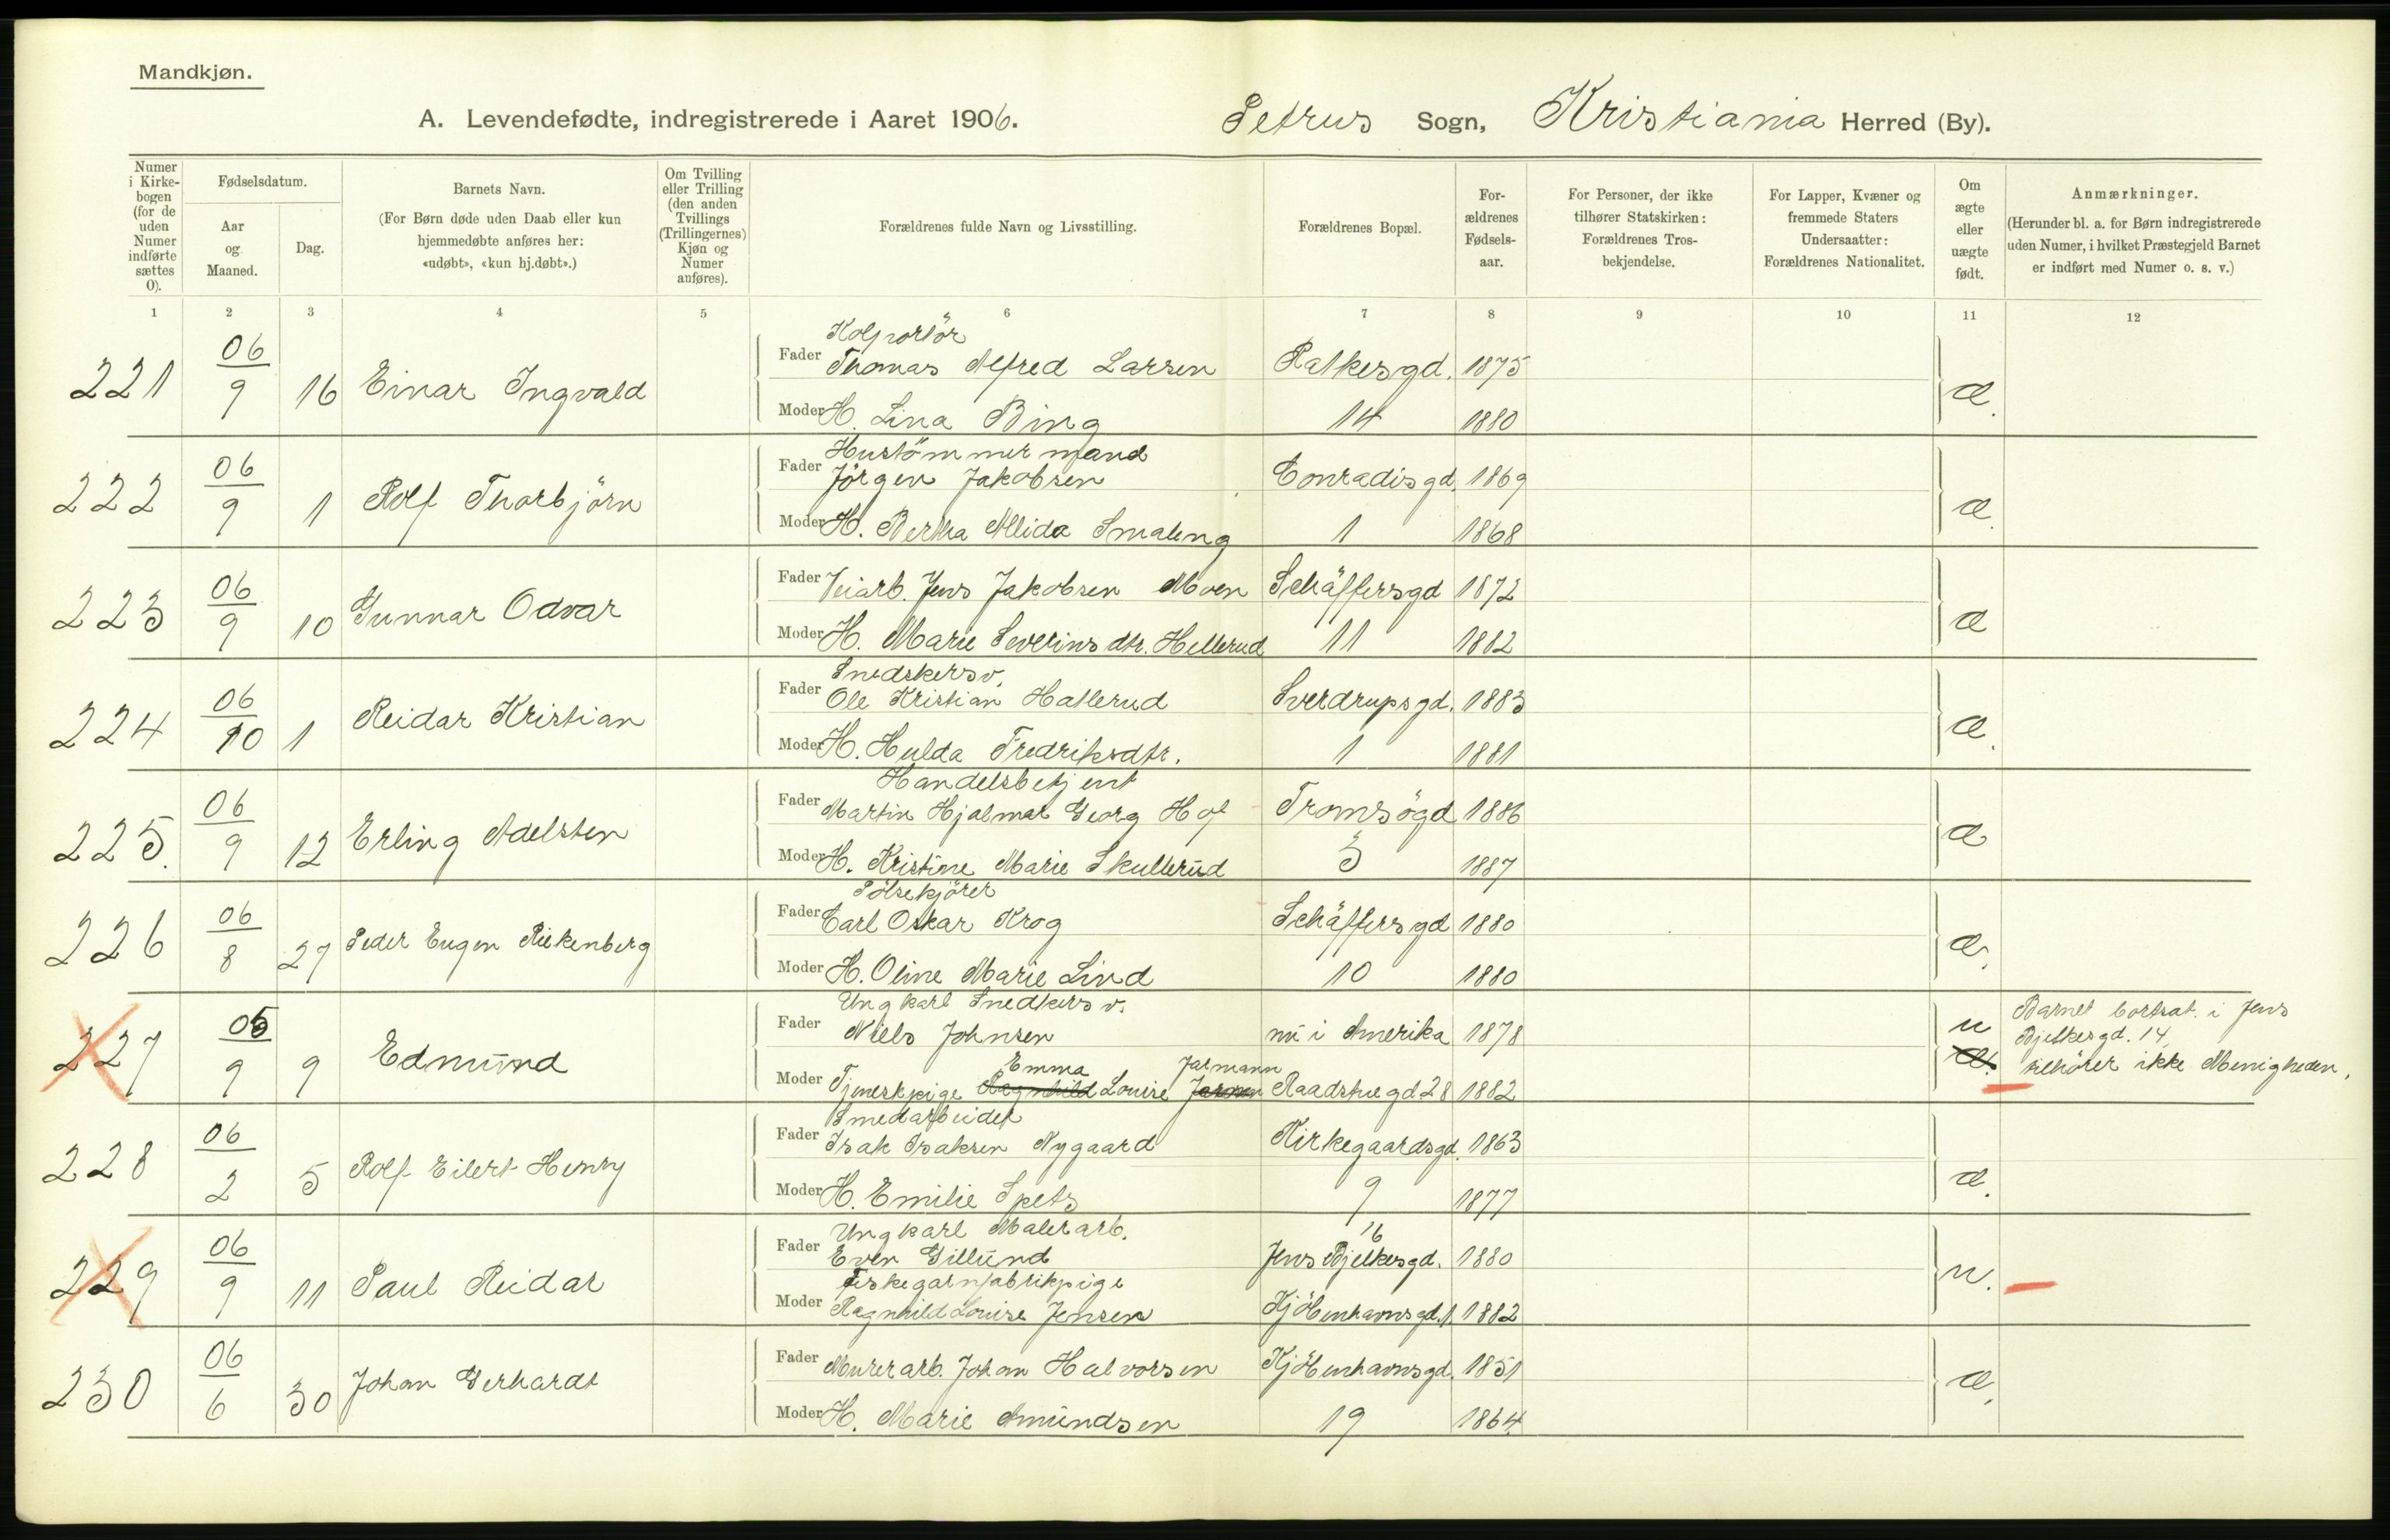 Mandkjøn.
A. Levendefødte, indregistrerede i Aaret 1906. Petrus Sogn, Kristiania Herred (By).
Numer i Kirkebogen (for de uden Numer indførte sættes 0).
Fødselsdatum.
Aar og Maaned.
Dag.
Barnets Navn.
(For Børn døde uden Daab eller kun hjemmedøbte anføres her: «udøbt», «kun hj.døbt».)
Om Tvilling eller Trilling (den anden Tvillings (Trillingernes) Kjøn og Numer anføres).
Forældrenes fulde Navn og Livsstilling.
Forældrenes Bopæl.
Forældrenes Fødselsaar.
For Personer, der ikke tilhører Statskirken: Forældrenes Trosbekjendelse.
For Lapper, Kvæner og fremmede Staters Undersaatter: Forældrenes Nationalitet.
Om ægte eller uægte født.
Anmærkninger.
(Herunder bl. a. for Børn indregistrerede uden Numer, i hvilket Præstegjeld Barnet er indført med Numer o. s. v.)
1 2 3 4 5 6 7 8 9 10 11 12
Kolportör
221 06/9 16 Einar Ingvald Fader Thomas Alfred Larsen Ratkesgd. 1875 æ.
Moder H. Lina Bing 14 1880
Hustömmermand
222 06/9 1 Rolf Thorbjörn Fader Jörgen Jakobsen Conradisgd. 1869 æ.
Moder H. Bertha Alida Smaleng 1 1868
223 06/9 10 Gunnar Odvar Fader Veiarb. Jens Jakobsen Moen Schäffersgd 1872 æ
Moder H. Marie Severinsdtr. Hellerud 11 1882
Snedkersv.
224 06/10 1 Reidar Kristian Fader Ole Kristian Hatlerud Sverdrupsgd. 1883 æ.
Moder H. Hulda Fredriksdtr. 1 1881
Handelsbetjent
225. 06/9 12 Erling Adelsten Fader Martin Hjalmar Georg Hof Tromsögd 1886 æ
Moder H. Kristine Marie Skullerud 3 1887
Pölsekjörer
226 06/8 27 Peder Eugen Riekenberg Fader Carl Oskar Krog Schäffersgd 1880 æ.
Moder H. Oline Marie Lind 10 1880
Ungkarl Snedkersv. Barnet bortsat i Jens
227 05/9 9 Edmund Fader Niels Johnsen nu i Amerika 1878 u Bjelkesgd. 14,
Emma Jarmann æ. tilhörer ikke Menigheden.
Moder Tjenestpige Ragnhild Louise Jensen Raadstuegd. 28 1882
Smedarbeider
228 06/2 5 Rolf Eilert Henry Fader Isak Isaksen Nygaard Kirkegaardsgd. 1863 æ.
Moder H. Emilie Spets 9 1877
Ungkarl Malerarb. 16
229 06/9 11 Paul Reidar Fader Even Gillund Jens Bjelkesgd. 1880 u.
Fiskegarnfabrikpige
Moder Ragnhild Louise Jensen Kjöbenhavnsgd. 1 1882
230 06/6 30 Johan Gerhardt Fader Murerarb. Johan Halvorsen Kjöbenhavnsgd. 1851 æ.
Moder H. Marie Amundsen 19 1864